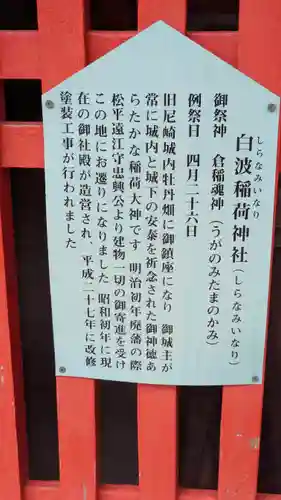 しらなみいなり
白波稲荷神社（しらなみいなり）
御祭神　倉稲魂神（うがのみたまのかみ）
例祭日　四月二十六日
旧尼崎城内牡丹畑に御鎮座になり　御城主が
常に城内と城下の安泰を祈念された御神徳あ
らたかな稲荷大神です　明治初年廃藩の際
松平遠江守忠興公より建物一切の御寄進を受け
この地にお遷りになりました　昭和初年に現
在の御社殿が造営され、平成二十七年に改修
塗装工事が行われました